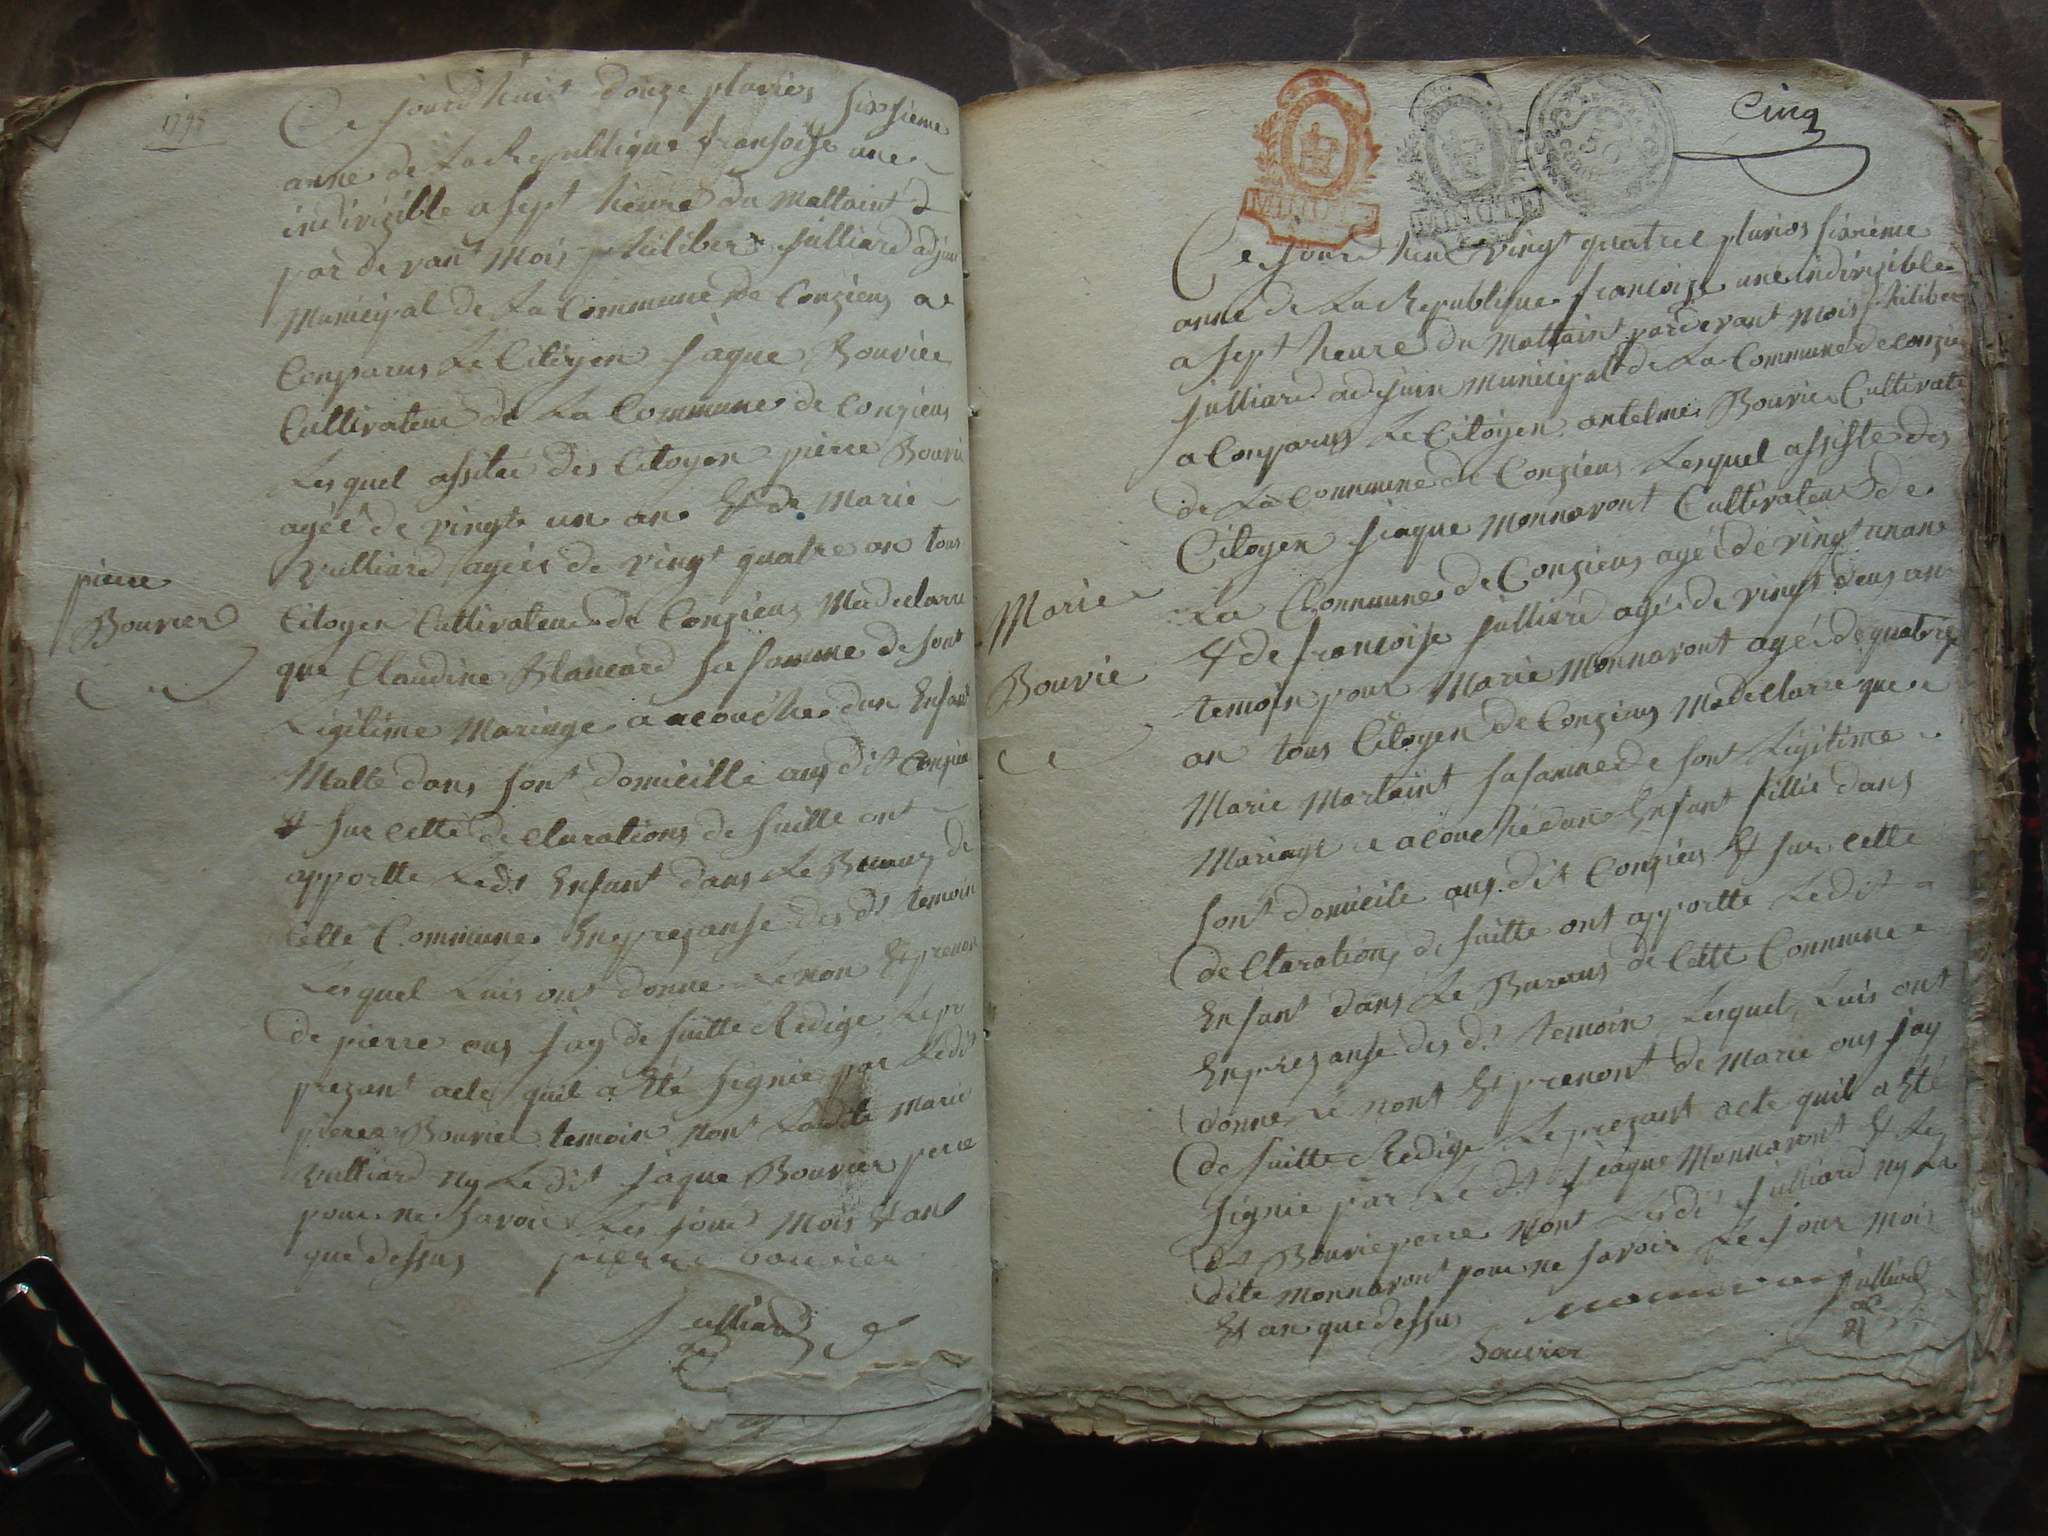 1798
Ce jourdhuit douze pluvies sixsieme
anne de La Republique fransoise une
indivizible a sept heure du Mattaint
par de vant Mois philiber Julliard adjoin
Municipal de La Commune de Conzieus a
Conparus Le Citoyen Jaque Bouvier
Cultivateur de La Commune de Conzieus
Lesquel assitée des Citoyen pierre Bouvie
ageé de vingt un an & de Marie
Vulliard ageie de vingt quatre an tous
Citoyen Cultivateur de Conzieus Me declaru
que Claudine Blancard sa famme de sont
Legitime Mariage a acouche dun Enfant
Malle dans sont domicille aus dit Conzieu
& sur cette declarations de suitte ont
apportte Ledt Enfant dans Le Buraus de
Cette Commune En prezanse des dt temoin
Lesquel Luis ont donne Le non Et prenon
de pierre ous jay de suitte Redige Le pr
prezant acte quil a Eté signie par Ledit
pierre Bouvier temoin nont Ladite Marie
Vulliard ny Le dit Jaque Bouvier pere
pour ne savoir Les jour Mois & an
que dessus pierre bouvier
Julliard
pierre
Bouvier
Cinq
MINUTE
MINUTE
Ce jourd hui vingt quatre pluvios sixsieme
anne de La Republique francoize une indivizible
a sept heure du Mattaint par de vant Mois philiber
Julliard adjoin Municipal de La Commune de conzieu
a Conparus Le Citoyen antelme Bouvie Cultivate
de La Commune de Conzieus Lesquel assiste des
Citoyen Jaque Monnavont Cultivateur de
La Commune de Conzieus ageé de vingt un an
& de francoise Julliard ageé de vingt deus an
temoin pour Marie Monnavont ageé de quatorze
an tous Citoyen de Conzieus Ma declarre que
Marie Martaint sa famme de sont Legitime
Mariage a acouché dune Enfant fillie dans
sont domicile aus dit Conzieus & sur cette
declarations de suitte ont apportte Ledit
Enfant dans Le Buraus de Cette Commune
En prezanse des dt temoin Lesquel Luis ont
donne Le nont Et prenont de Marie ous jay
de suitte Redige Le prezant acte quil a Eté
signie par Le dt Jaque Monnavont & Le
dt Bouvie pere nont Lesdi Julliard ny La
dite Monnavont pour ne savoir Le jour Mois
Et an que dessus Julliard
bouvier
Marie
Bouvie